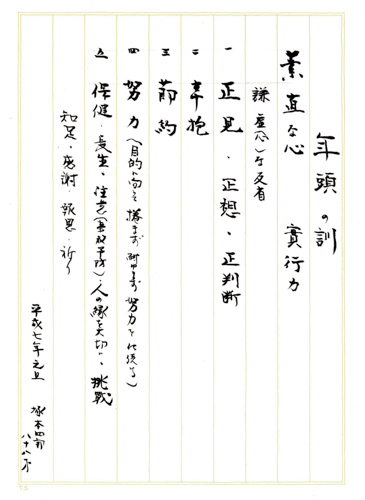 年頭の訓
素直な心 實行力
謙虚(心)な反省
一 正見、正想、正判断
二 辛抱
三 節約
四 努力(目的に向って撓まず 努力を
五 保健・長生、人の縁を大切に、挑戦
知足・感謝・報恩・祈り
平成七年元旦
八十八才